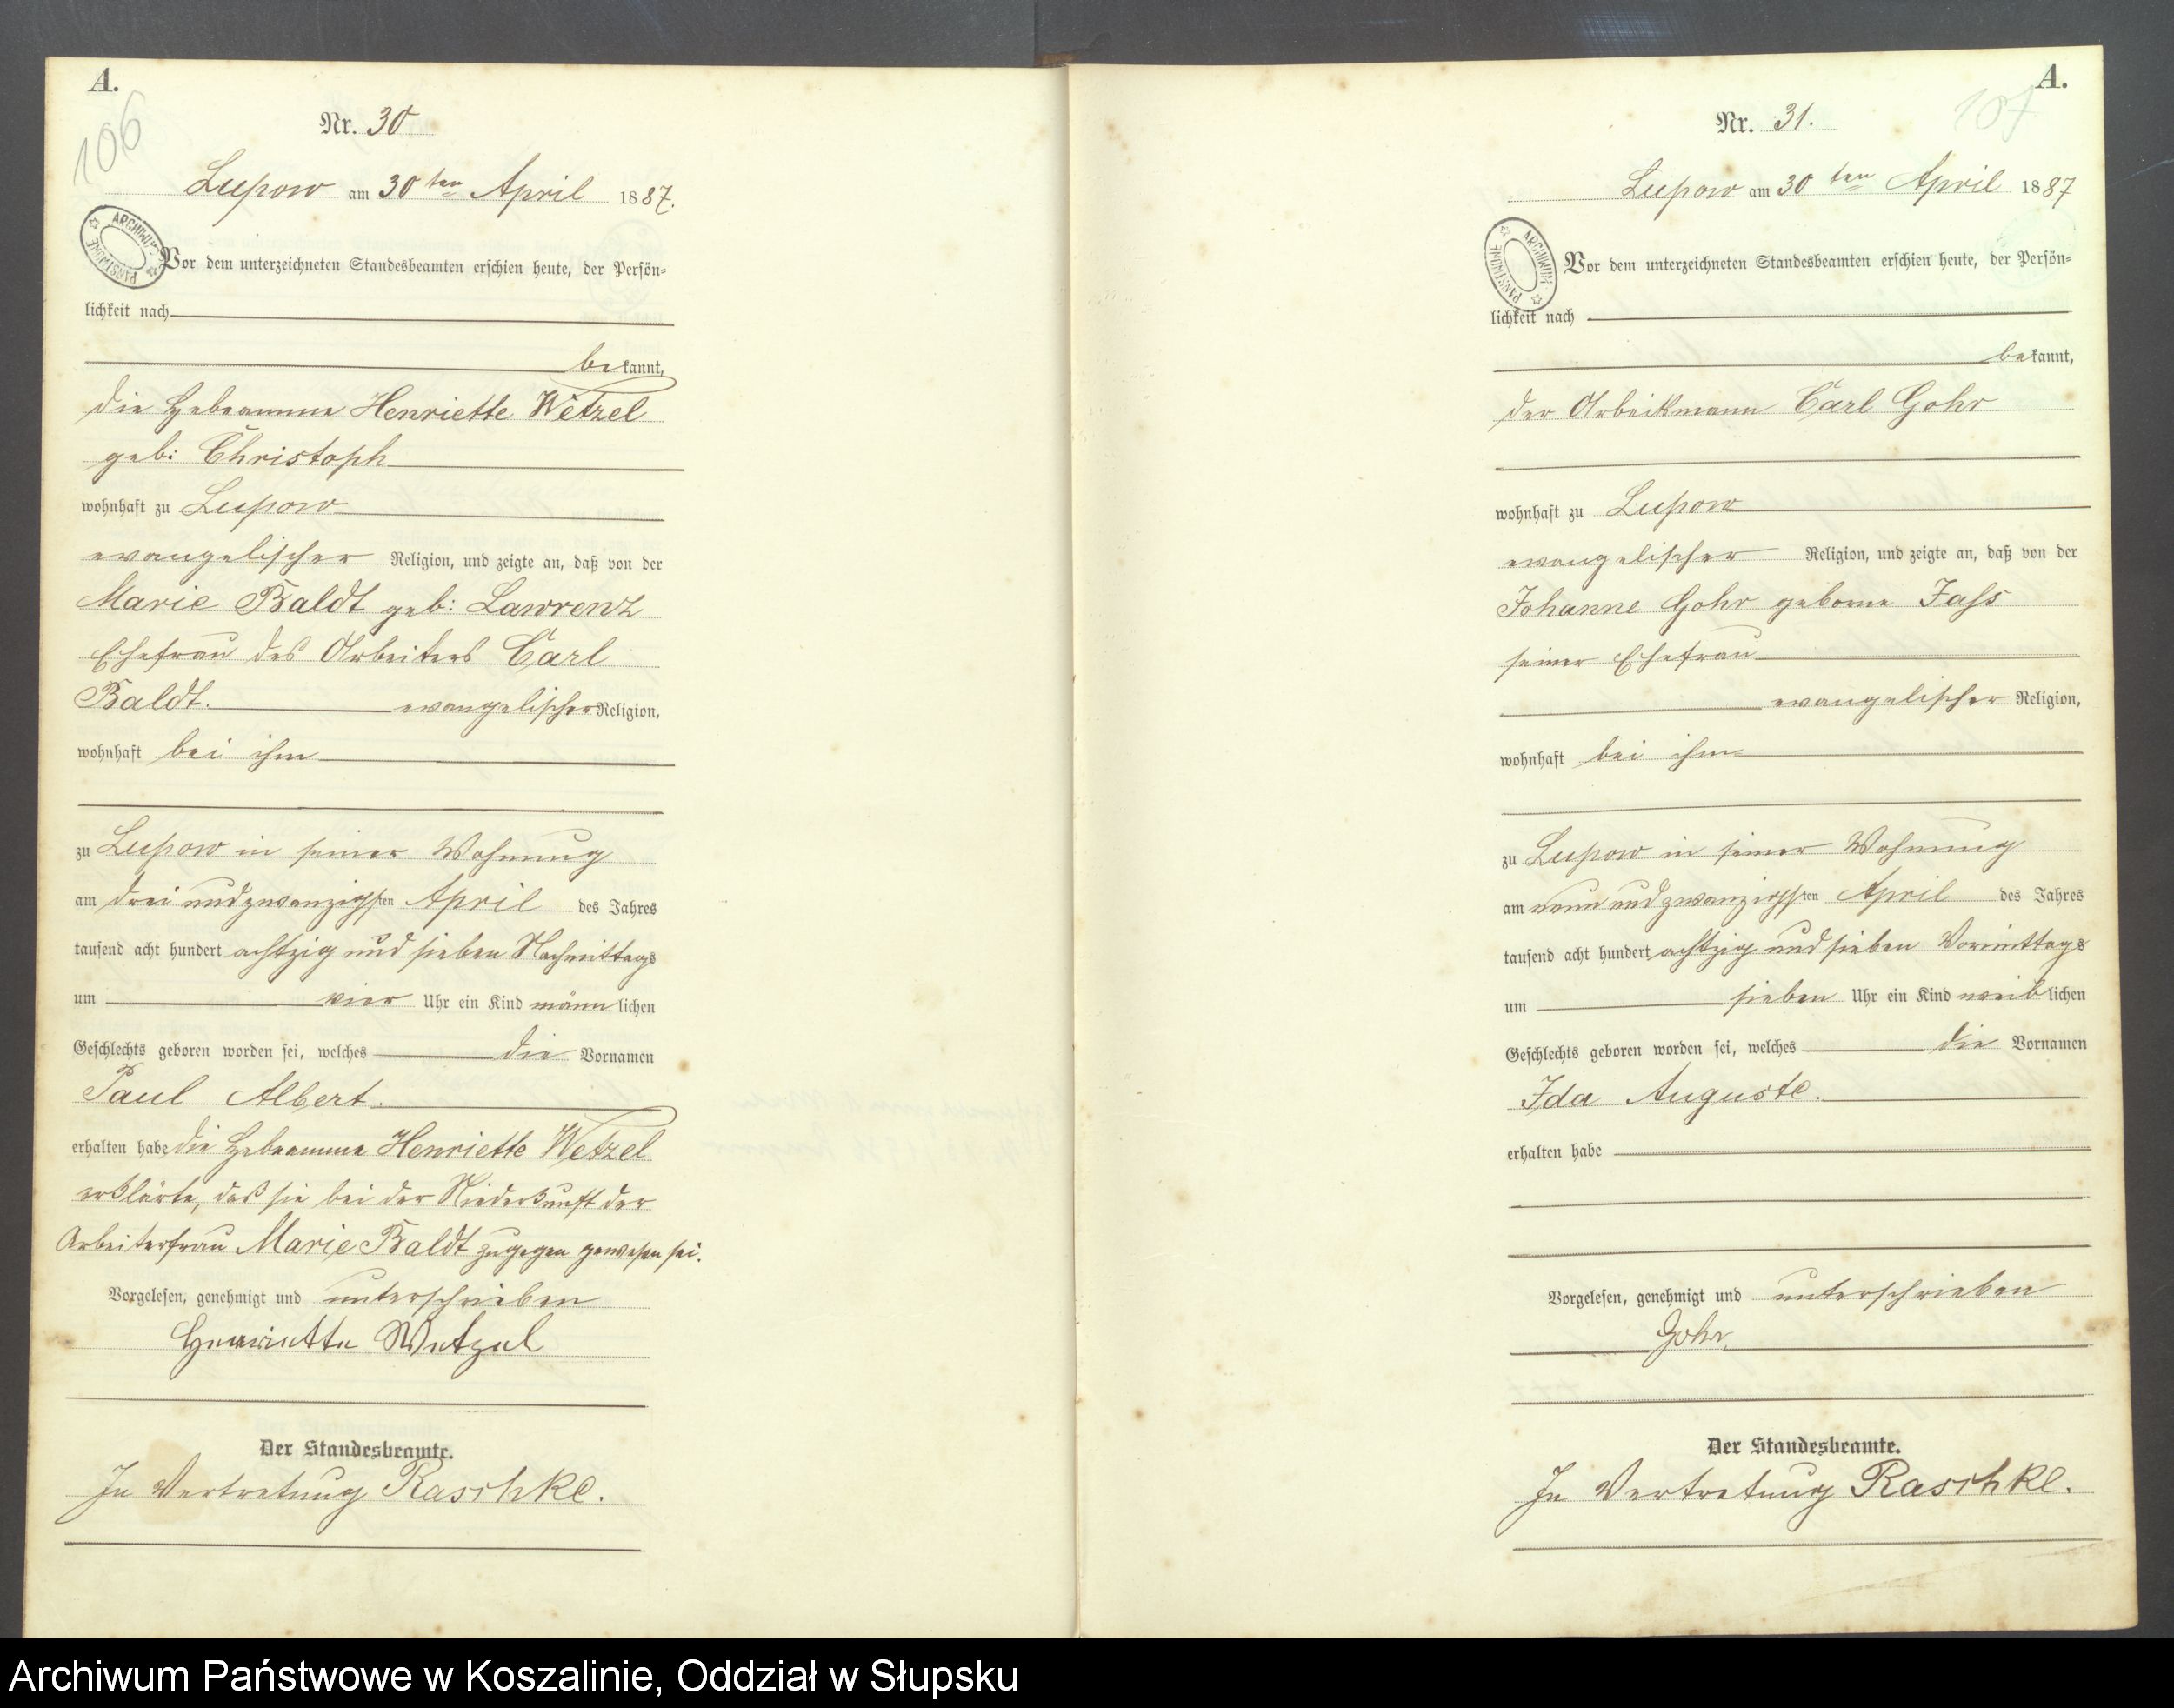 A.
106
Nr. 30
Lupow am 30ten April 1887.
ARCHIWUM PAŃSTWOWE
Vor dem unterzeichneten Standesbeamten erschien heute, der Persön=
lichkeit nach
bekannt,
die Hebeamme Henriette Wetzel
geb: Christoph
wohnhaft zu Lupow
evangelischer Religion, und zeigte an, daß von der
Marie Baldt geb: Lawrenz
Ehefrau des Arbeiters Carl
Baldt. evangelischer Religion,
wohnhaft bei ihm
zu Lupow in seiner Wohnung
am drei und zwanzigsten April des Jahres
tausend acht hundert achtzig und sieben Nachmittags
um vier Uhr ein Kind männlichen
Geschlechts geboren worden sei, welches die Vornamen
Paul Albert.
erhalten habe die Hebeamme Henriette Wetzel
erklärte, daß sie bei der Niederkunft der
Arbeiterfrau Marie Baldt zugegen gewesen sei.
Vorgelesen, genehmigt und unterschrieben
Henriette Wetzel
Der Standesbeamte.
In Vertretung Raschke.
A.
107
Nr. 31.
Lupow am 30ten April 1887
ARCHIWUM PAŃSTWOWE
Vor dem unterzeichneten Standesbeamten erschien heute, der Persön=
lichkeit nach
bekannt,
der Arbeitsmann Carl Gohr
wohnhaft zu Lupow
evangelischer Religion, und zeigte an, daß von der
Johanne Gohr geborne Jass
seiner Ehefrau
evangelischer Religion,
wohnhaft bei ihm
zu Lupow in seiner Wohnung
am neun und zwanzigsten April des Jahres
tausend acht hundert achtzig und sieben Vormittags
um sieben Uhr ein Kind weiblichen
Geschlechts geboren worden sei, welches die Vornamen
Ida Auguste.
erhalten habe
Vorgelesen, genehmigt und unterschrieben
Gohr
Der Standesbeamte.
In Vertretung Raschke.
Archiwum Państwowe w Koszalinie, Oddział w Słupsku